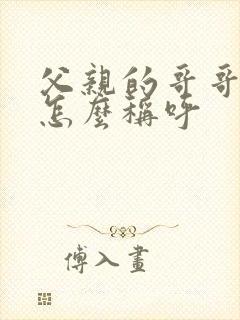 父親的哥哥
怎麼稱呼
傅入畫